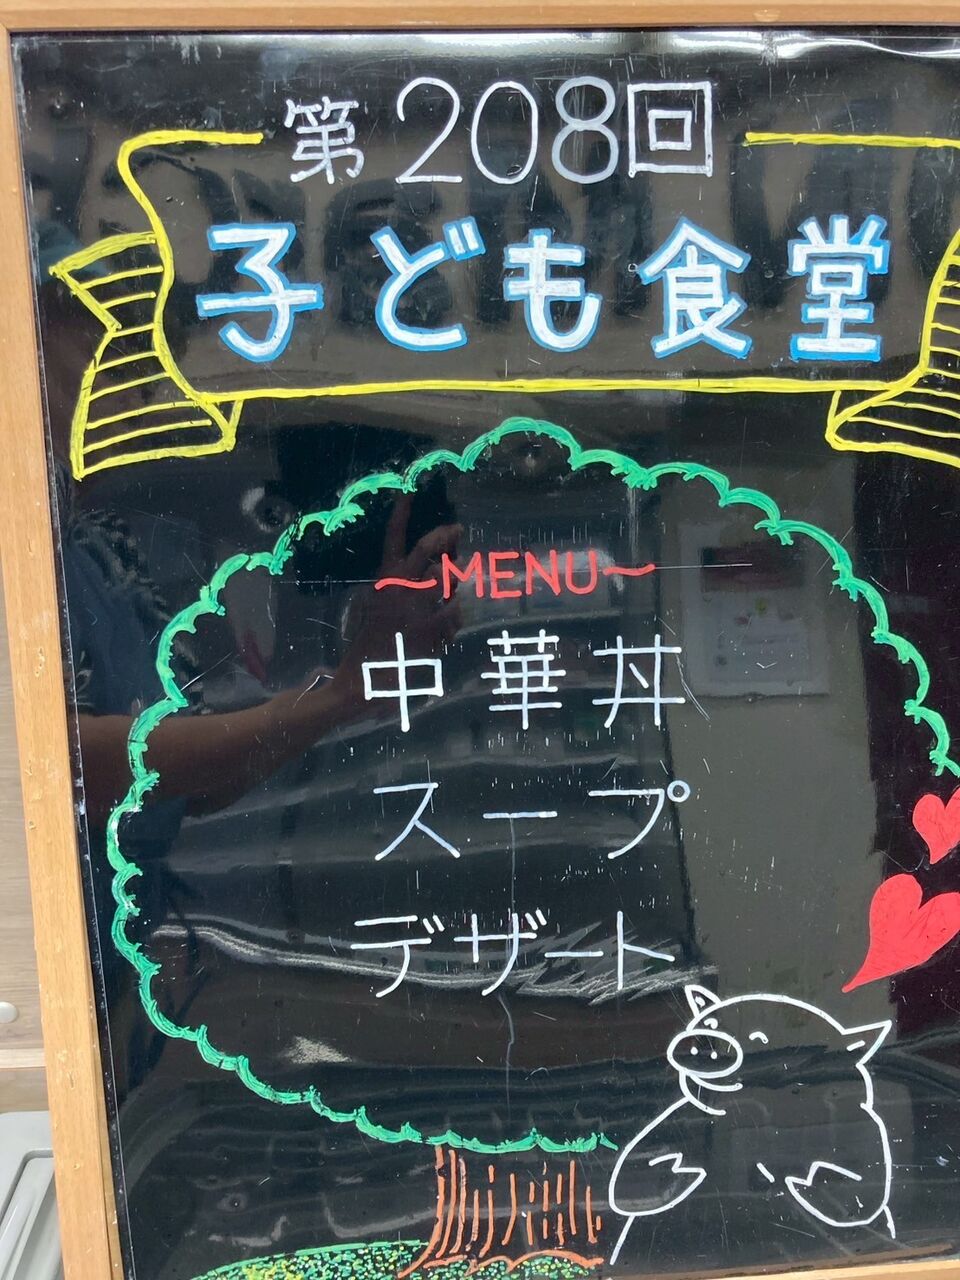 第208回
子ども食堂
～MENU～
中華丼
スープ
デザート